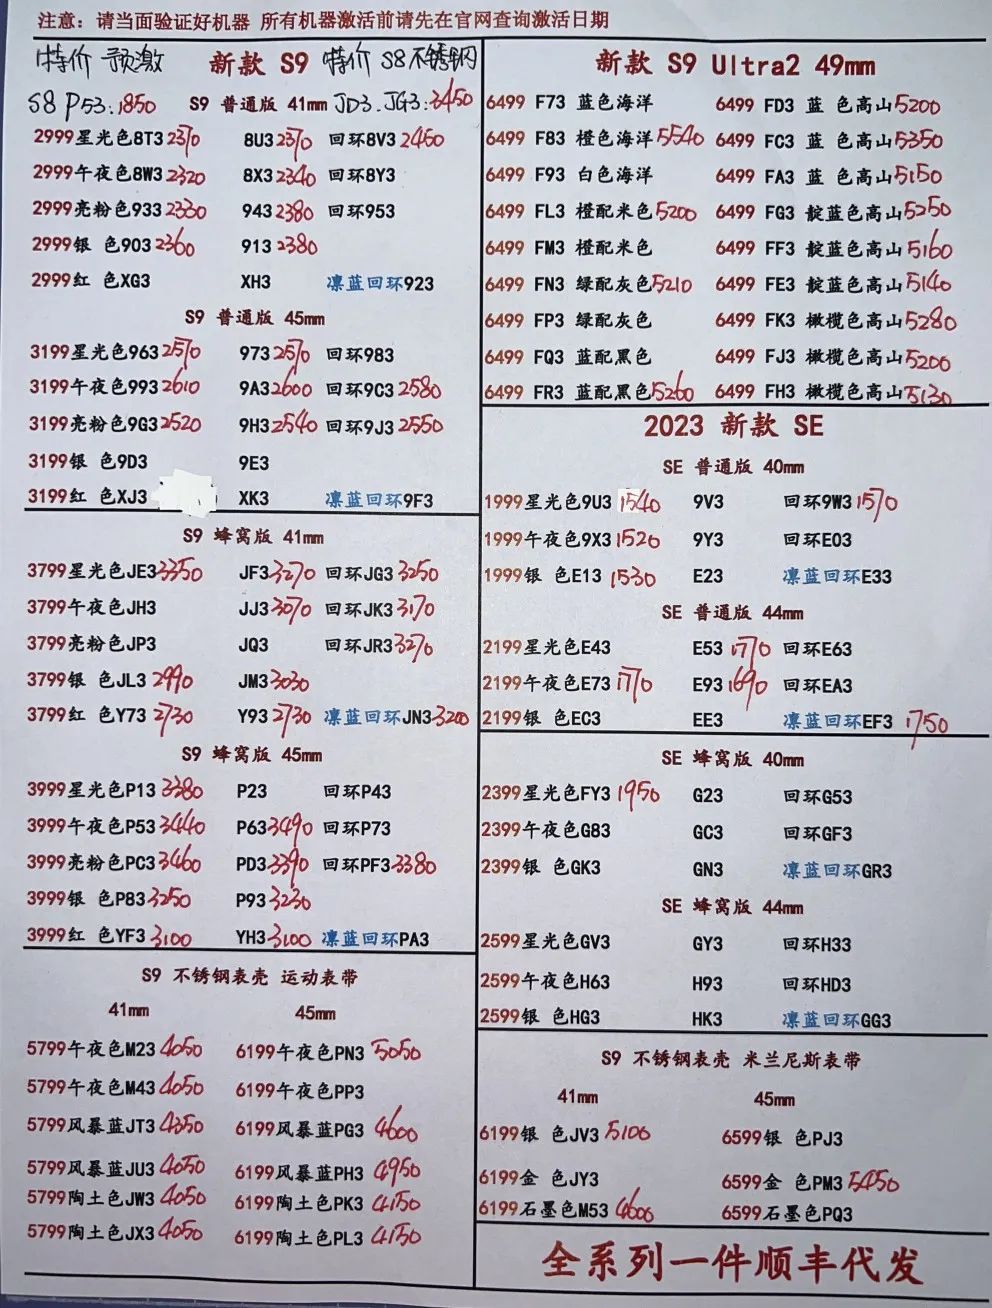 注意：请当面验证好机器 所有机器激活前请先在官网查询激活日期
特价 预激 新款 S9 特价 S8不锈钢
S8 P53:1850 S9 普通版 41mm JD3.JG3:3450
2999星光色8T3 2370 8U3 2370 回环8V3 2460
2999午夜色8W3 2320 8X3 2340 回环8Y3
2999亮粉色933 2330 943 2380 回环953
2999银 色903 2360 913 2380
2999红 色XG3 XH3 凛蓝回环923
S9 普通版 45mm
3199星光色963 2570 973 2570 回环983
3199午夜色993 2610 9A3 2600 回环9C3 2580
3199亮粉色9G3 2520 9H3 2540 回环9J3 2550
3199银 色9D3 9E3
3199红 色XJ3 XK3 凛蓝回环9F3
S9 蜂窝版 41mm
3799星光色JE3 3350 JF3 3270 回环JG3 3250
3799午夜色JH3 JJ3 3070 回环JK3 3170
3799亮粉色JP3 JQ3 回环JR3 3270
3799银 色JL3 2990 JM3 3030
3799红 色Y73 2730 Y93 2730 凛蓝回环JN3 3200
S9 蜂窝版 45mm
3999星光色P13 3380 P23 回环P43
3999午夜色P53 3440 P63 3490 回环P73
3999亮粉色PC3 3460 PD3 3390 回环PF3 3380
3999银 色P83 3250 P93 3230
3999红 色YF3 3100 YH3 3100 凛蓝回环PA3
S9 不锈钢表壳 运动表带
41mm 45mm
5799午夜色M23 4050 6199午夜色PN3 5050
5799午夜色M43 4050 6199午夜色PP3
5799风暴蓝JT3 4350 6199风暴蓝PG3 4600
5799风暴蓝JU3 4050 6199风暴蓝PH3 4950
5799陶土色JW3 4050 6199陶土色PK3 4150
5799陶土色JX3 4050 6199陶土色PL3 4150
新款 S9 Ultra2 49mm
6499 F73 蓝色海洋 6499 FD3 蓝 色高山5200
6499 F83 橙色海洋5540 6499 FC3 蓝 色高山5350
6499 F93 白色海洋 6499 FA3 蓝 色高山5150
6499 FL3 橙配米色5200 6499 FG3 靛蓝色高山5250
6499 FM3 橙配米色 6499 FF3 靛蓝色高山5160
6499 FN3 绿配灰色5210 6499 FE3 靛蓝色高山5140
6499 FP3 绿配灰色 6499 FK3 橄榄色高山5280
6499 FQ3 蓝配黑色 6499 FJ3 橄榄色高山5200
6499 FR3 蓝配黑色5260 6499 FH3 橄榄色高山5130
2023 新款 SE
SE 普通版 40mm
1999星光色9U3 1540 9V3 回环9W3 1570
1999午夜色9X3 1520 9Y3 回环E03
1999银 色E13 1530 E23 凛蓝回环E33
SE 普通版 44mm
2199星光色E43 E53 1770 回环E63
2199午夜色E73 1770 E93 1690 回环EA3
2199银 色EC3 EE3 凛蓝回环EF3 1750
SE 蜂窝版 40mm
2399星光色FY3 1950 G23 回环G53
2399午夜色G83 GC3 回环GF3
2399银 色GK3 GN3 凛蓝回环GR3
SE 蜂窝版 44mm
2599星光色GV3 GY3 回环H33
2599午夜色H63 H93 回环HD3
2599银 色HG3 HK3 凛蓝回环GG3
S9 不锈钢表壳 米兰尼斯表带
41mm 45mm
6199银 色JV3 5100 6599银 色PJ3
6199金 色JY3 6599金 色PM3 5450
6199石墨色M53 4600 6599石墨色PQ3
全系列一件顺丰代发